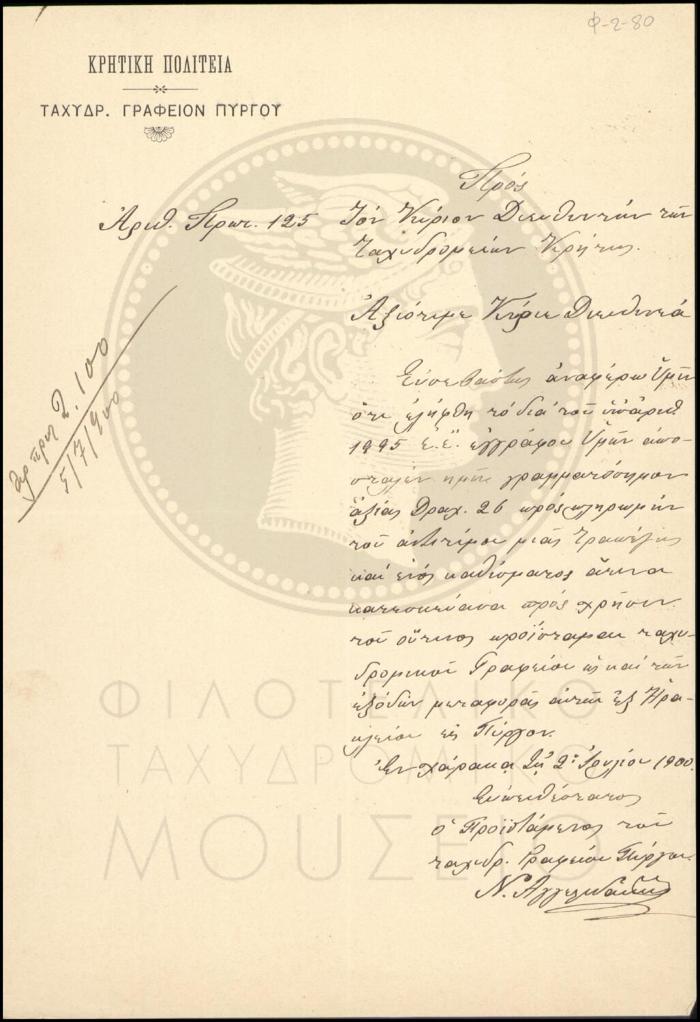 Φ-2-80
ΚΡΗΤΙΚΗ ΠΟΛΙΤΕΙΑ
ΤΑΧΥΔΡ. ΓΡΑΦΕΙΟΝ ΠΥΡΓΟΥ
Πρός
Ἀριθ. Πρωτ. 125 Τὸν Κύριον Διευθυντὴν τῶν
Ταχυδρομείων Κρήτης.
Ἀξιότιμε Κύριε Διευθυντά
2.100
5/7/900
Εὐσεβάστως ἀναφέρω Ὑμῖν
ὅτι ἐλήφθη τὸ διὰ τοῦ ὑπ' ἀριθ
1995 ἐ.ἔ. ἐγγράφου Ὑμῶν ἀπο-
σταλὲν ἡμῖν γραμματόσημον
ἀξίας Δραχ. 26 πρὸς πληρωμὴν
τοῦ ἀντιτίμου μιᾶς τραπέζης
καὶ ἑνὸς καθίσματος ἅτινα
κατεσκεύασα πρὸς χρῆσιν
τοῦ οὗτινος προΐσταμαι ταχυ-
δρομικοῦ Γραφείου ὡς καὶ τῶν
ἐξόδων μεταφορᾶς αὐτῶν ἐξ Ἡρα-
κλείου εἰς Πύργον.
Ἐν Χάρακα τῇ 2ᾳ Ἰουλίου 1900
Εὐπειθέστατος
ὁ Προϊστάμενος τοῦ
ταχυδρ. Γραφείου Πύργου
Ν. Ἀγγελιδάκης
ΦΙΛΟΤΕΛΙΚΟ
ΤΑΧΥΔΡΟΜΙΚΟ
ΜΟΥΣΕΙΟ